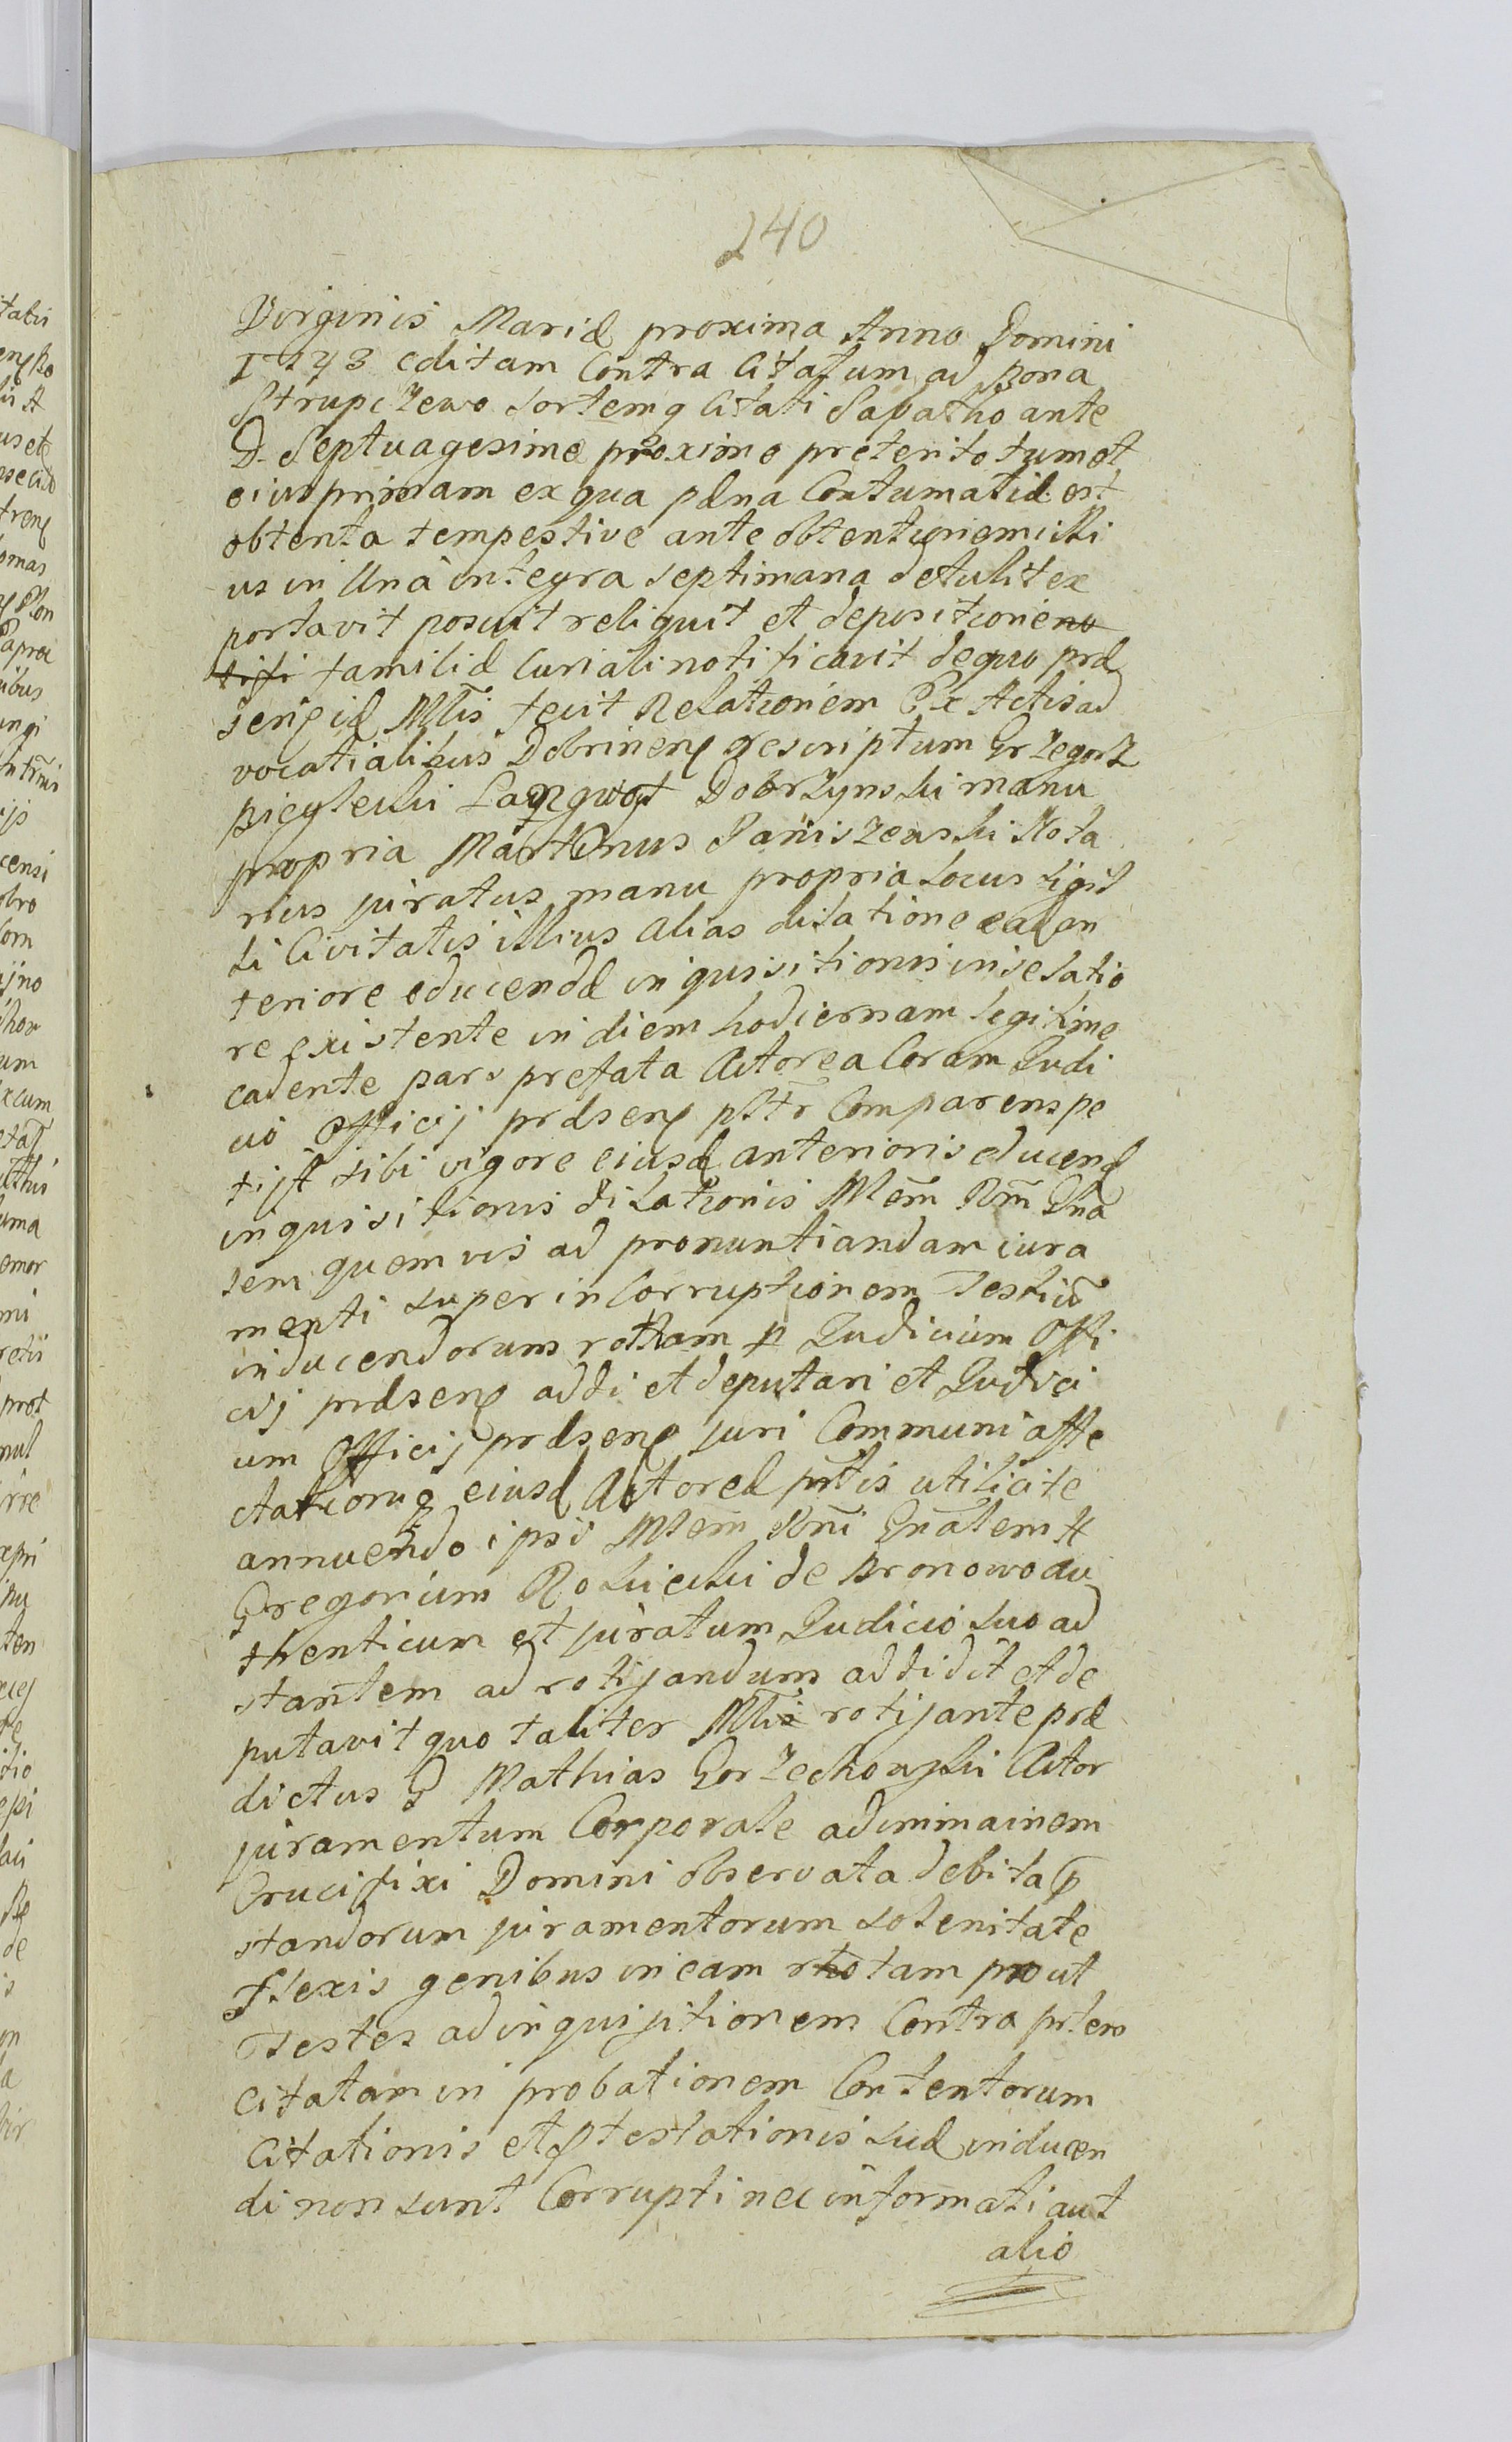 240
Virginis Mariæ proxima Anno Domini
1743 editam Contra Citatum ad Bona
Strupczewo Sortemq Citati Sabatho ante
D. Septuagesimæ proxime preterito tum et
eius primam ex qua pæna Contumatiæ est
obtenta tempestive ante obtentionem illi
us in Una integra septimana detulit ex
portavit posuit reliquit et depositione
familiæ Curiali notificavit de quo præ
Mtis fecit Relationem Ex Actis ad
vocatialibus Dobrinen descriptum Grzegorz
Dobrzynski manu
propria Martinus Janiszewski Nota
rius juratus manu propria Locus sigil
li Civitatis illius Alias dilatione ea an
teriore educendæ inquisitionis in se latio
re existente in diem hodiernam legitime
cadente pars prefata Actorea Coram Judi
cio Officij prædsen pltr Comparens pe
tijt sibi vigore eiusd anterioris educend
inquisitionis dilationis Mlem Rm Gna
lem quemvis ad pronuntiandam iura
menti super inCorruptionem Testiũ
inducendorum rotham p Judicium Offi
cij prædsen addi et deputari et Judici
um Officij prædsen juri Communi affe
ctationiq eiusd Actoreæ prtis utilicite
annuendo ipsi Mlem Rni Gnalem H
Gregorium Rokicki de Bronowo au
thenticum et juratum Judicio suo ad
stantem ad rotijandum addidit et de
putavit quo taliter Mli rotijante præ
dictus G Mathias Gorzechowski Actor
juramentum Corporale ad immainem
Crucifixi Domini observata debita p
standorum juramentorum solenitate
flexis genibus in eam rhotam prout
Testes ad inquisitionem Contra prtem
citatam in probationem Contentorum
Citationis et ptestationis suæ inducen
di non sunt Corrupti nec informati aut
alio